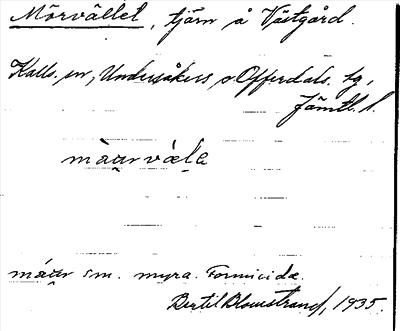 Mörvället, tjärn å Västgård.
Kalls sn, Undersåkers o Offerdals tg,
Jämtl. l.
màu̯rvàḷa
máu̯r sm. myra. Formicidæ.
Bertil Blomstrand, 1935.